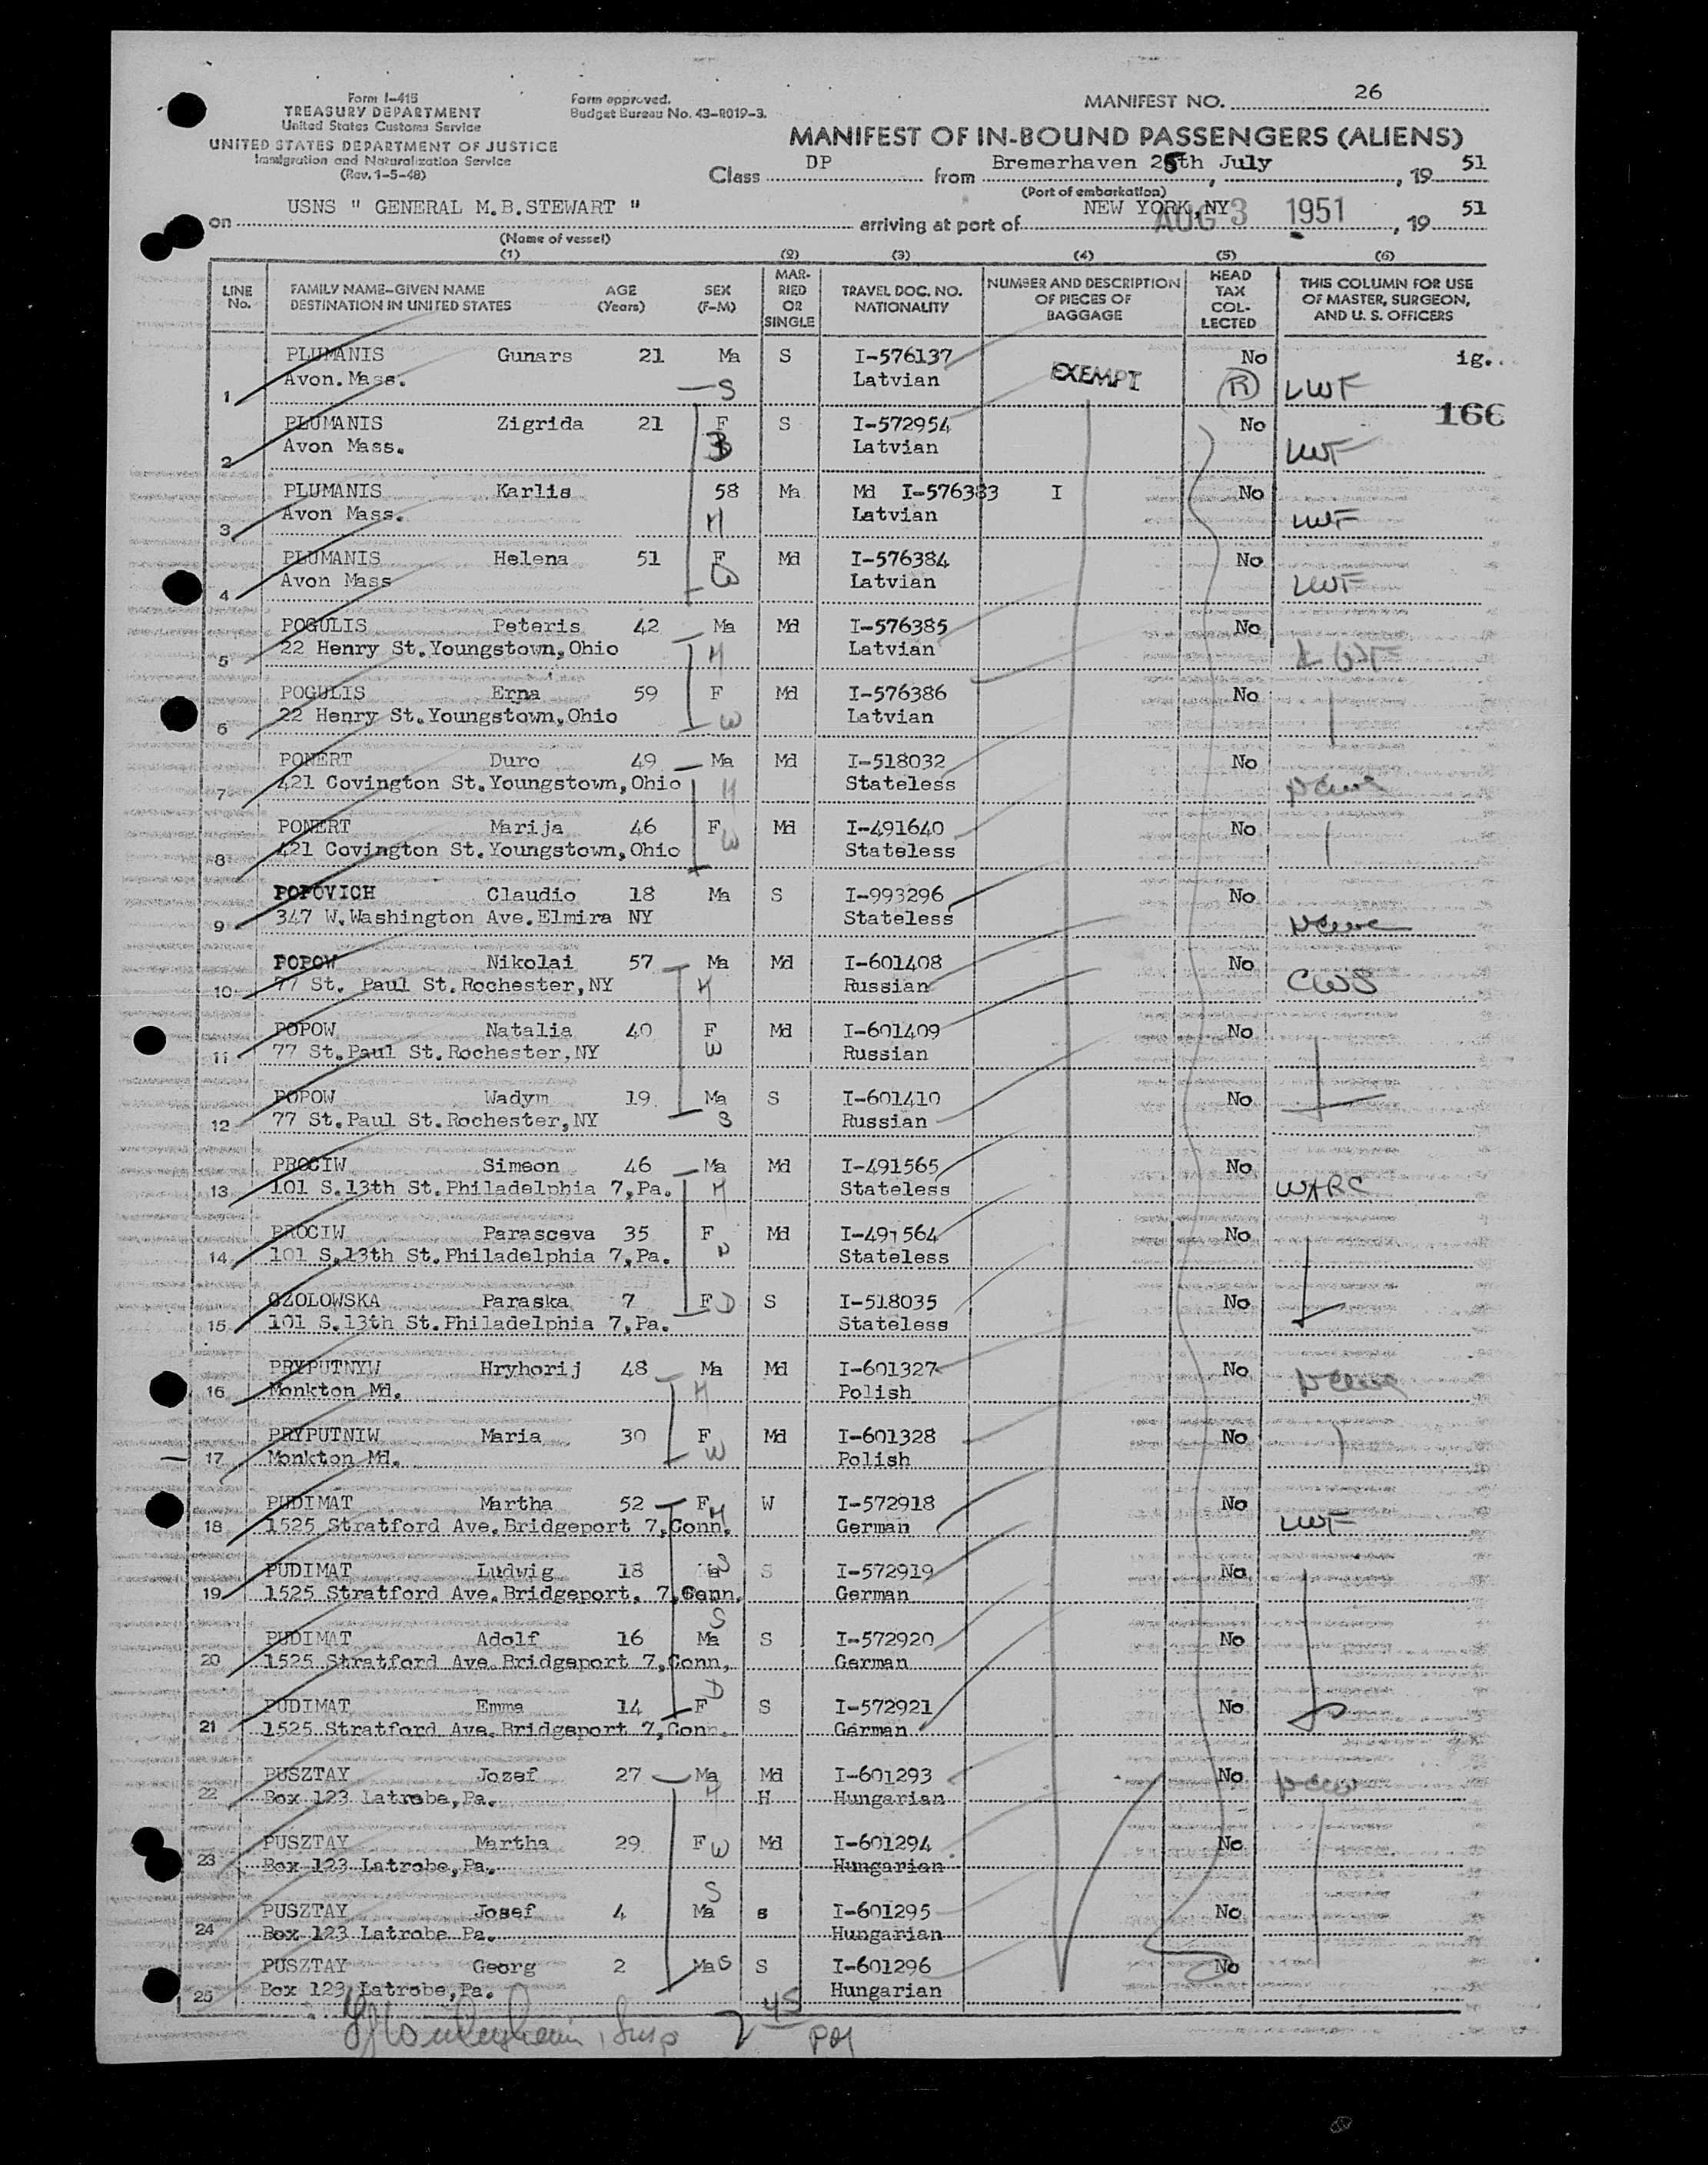 Form I-415
TREASURY DEPARTMENT
United States Customs Service
UNITED STATES DEPARTMENT OF JUSTICE
Immigration and Naturalization Service
(Rev. 1-5-48)
Form approved.
Budget Bureau No. 43-R019-3.
MANIFEST NO. 26
MANIFEST OF IN-BOUND PASSENGERS (ALIENS)
Class DP from Bremerhaven 25th July, 19 51
(Port of embarkation)
on USNS " GENERAL M.B.STEWART " arriving at port of NEW YORK,NY AUG 3 1951, 19 51
(Name of vessel)
(1) (2) (3) (4) (5) (6)
LINE No. FAMILY NAME—GIVEN NAME DESTINATION IN UNITED STATES AGE (Years) SEX (F-M) MARRIED OR SINGLE TRAVEL DOC. NO. NATIONALITY NUMBER AND DESCRIPTION OF PIECES OF BAGGAGE HEAD TAX COLLECTED THIS COLUMN FOR USE OF MASTER, SURGEON, AND U. S. OFFICERS
PLUMANIS Gunars 21 Ma S I-576137 No ig.
1 Avon. Mass. S Latvian EXEMPT R LWF
166
PLUMANIS Zigrida 21 F S I-572954 No
2 Avon Mass. Latvian LWF
PLUMANIS Karlis 58 Ma Md I-576383 I No
3 Avon Mass. H Latvian LWF
PLUMANIS Helena 51 F Md I-576384 No
4 Avon Mass W Latvian LWF
POGULIS Peteris 42 Ma Md I-576385 No
5 22 Henry St.Youngstown,Ohio H Latvian LWF
POGULIS Erna 59 F Md I-576386 No
6 22 Henry St.Youngstown,Ohio W Latvian
PONERT Duro 49 Ma Md I-518032 No
7 421 Covington St.Youngstown,Ohio H Stateless
PONERT Marija 46 F Md I-491640 No
8 421 Covington St.Youngstown,Ohio W Stateless
POPOVICH Claudio 18 Ma S I-993296 No
9 347 W.Washington Ave.Elmira NY Stateless
POPOW Nikolai 57 Ma Md I-601408 No
10 77 St. Paul St.Rochester,NY H Russian CWS
POPOW Natalia 40 F Md I-601409 No
11 77 St.Paul St.Rochester,NY W Russian
POPOW Wadym 19 Ma S I-601410 No
12 77 St.Paul St.Rochester,NY S Russian
PROCIW Simeon 46 Ma Md I-491565 No
13 101 S.13th St.Philadelphia 7,Pa. H Stateless WARC
PROCIW Parasceva 35 F Md I-491564 No
14 101 S.13th St.Philadelphia 7,Pa. Stateless
OZOLOWSKA Paraska 7 F D S I-518035 No
15 101 S.13th St.Philadelphia 7,Pa. Stateless
PRYPUTNYW Hryhorij 48 Ma Md I-601327 No
16 Monkton Md. H Polish
PRYPUTNIW Maria 30 F Md I-601328 No
17 Monkton Md. W Polish
PUDIMAT Martha 52 F H W I-572918 No
18 1525 Stratford Ave.Bridgeport 7,Conn. German LWF
PUDIMAT Ludwig 18 Ma S S I-572919 No
19 1525 Stratford Ave.Bridgeport. 7,Conn. German
PUDIMAT Adolf 16 Ma S S I-572920 No
20 1525 Stratford Ave Bridgeport 7,Conn, German
PUDIMAT Emma 14 F D S I-572921 No
21 1525 Stratford Ave.Bridgeport 7,Conn. German
PUSZTAY Jozef 27 Ma Md I-601293 No
22 Box 123 Latrobe,Pa. H H Hungarian
PUSZTAY Martha 29 F W Md I-601294 No
23 Box 123 Latrobe,Pa. Hungarian
PUSZTAY Josef 4 Ma S s I-601295 No
24 Box 123 Latrobe Pa. Hungarian
PUSZTAY Georg 2 Ma S S I-601296 No
25 Box 123 Latrobe,Pa. Hungarian
45